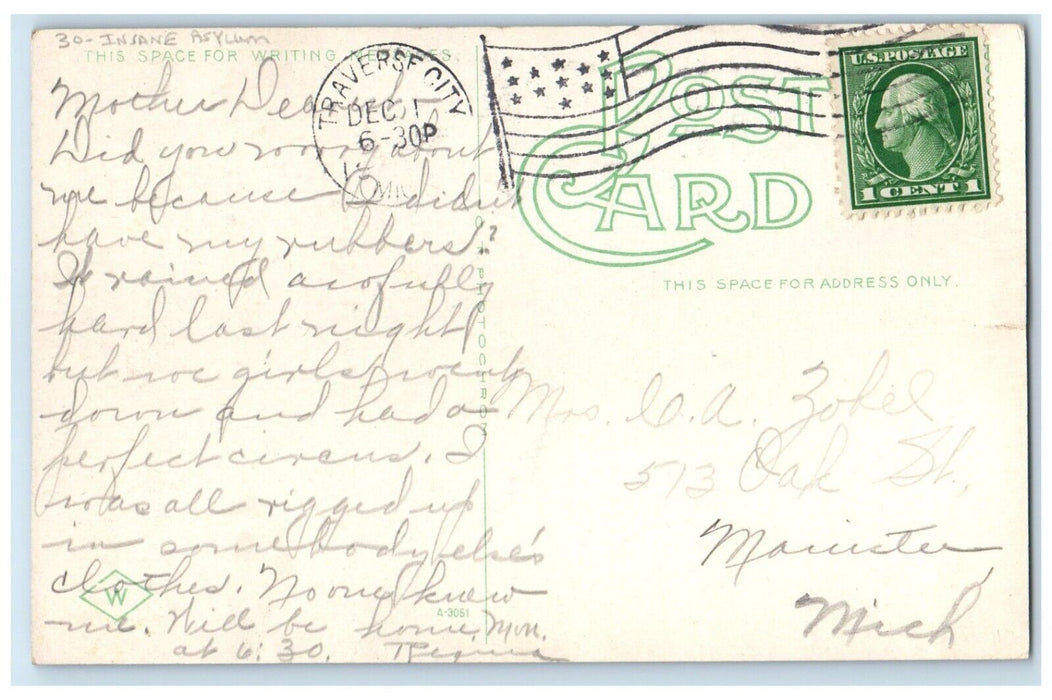 30- INSANE ASYLUM
THIS SPACE FOR WRITING MESSAGES.
Mother Dear:-
Did you worry about
me because I didn't
have my rubbers?
It rained awfully
hard last night
but we girls went
down and had a
perfect circus. I
was all rigged up
in somebody else's
clothes. No one knew
me. Will be home Mon.
at 6:30. Regina
W
A-3051
PHOTOCHROM
TRAVERSE CITY
DEC 1
6-30P
MICH
POST CARD
U.S. POSTAGE
1 CENT 1
THIS SPACE FOR ADDRESS ONLY.
Mrs. C. A. Zobel
513 Oak St.,
Manistee
Mich